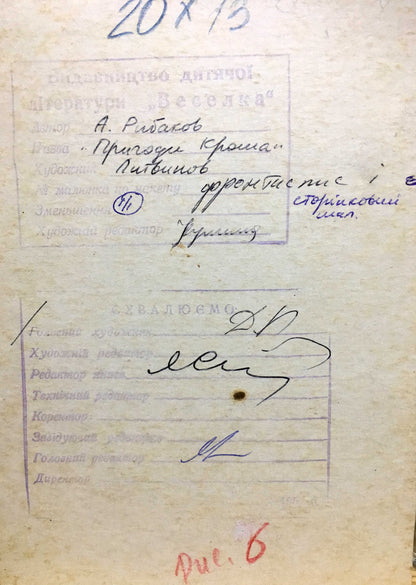 20 х 13
Видавництво дитячої
літератури „Веселка“
Автор А. Рибаков
Назва "Пригоди Кроша"
Художник Литвинов
№ малюнка по макету фронтиспис і
Зменшення сторінковий
мал.
Художній редактор
СХВАЛЮЄМО
Головний художник
Художній редактор
Редактор
Технічний редактор
Коректор
Завідуючий редакцією
Головний редактор
Директор
Рис. 6